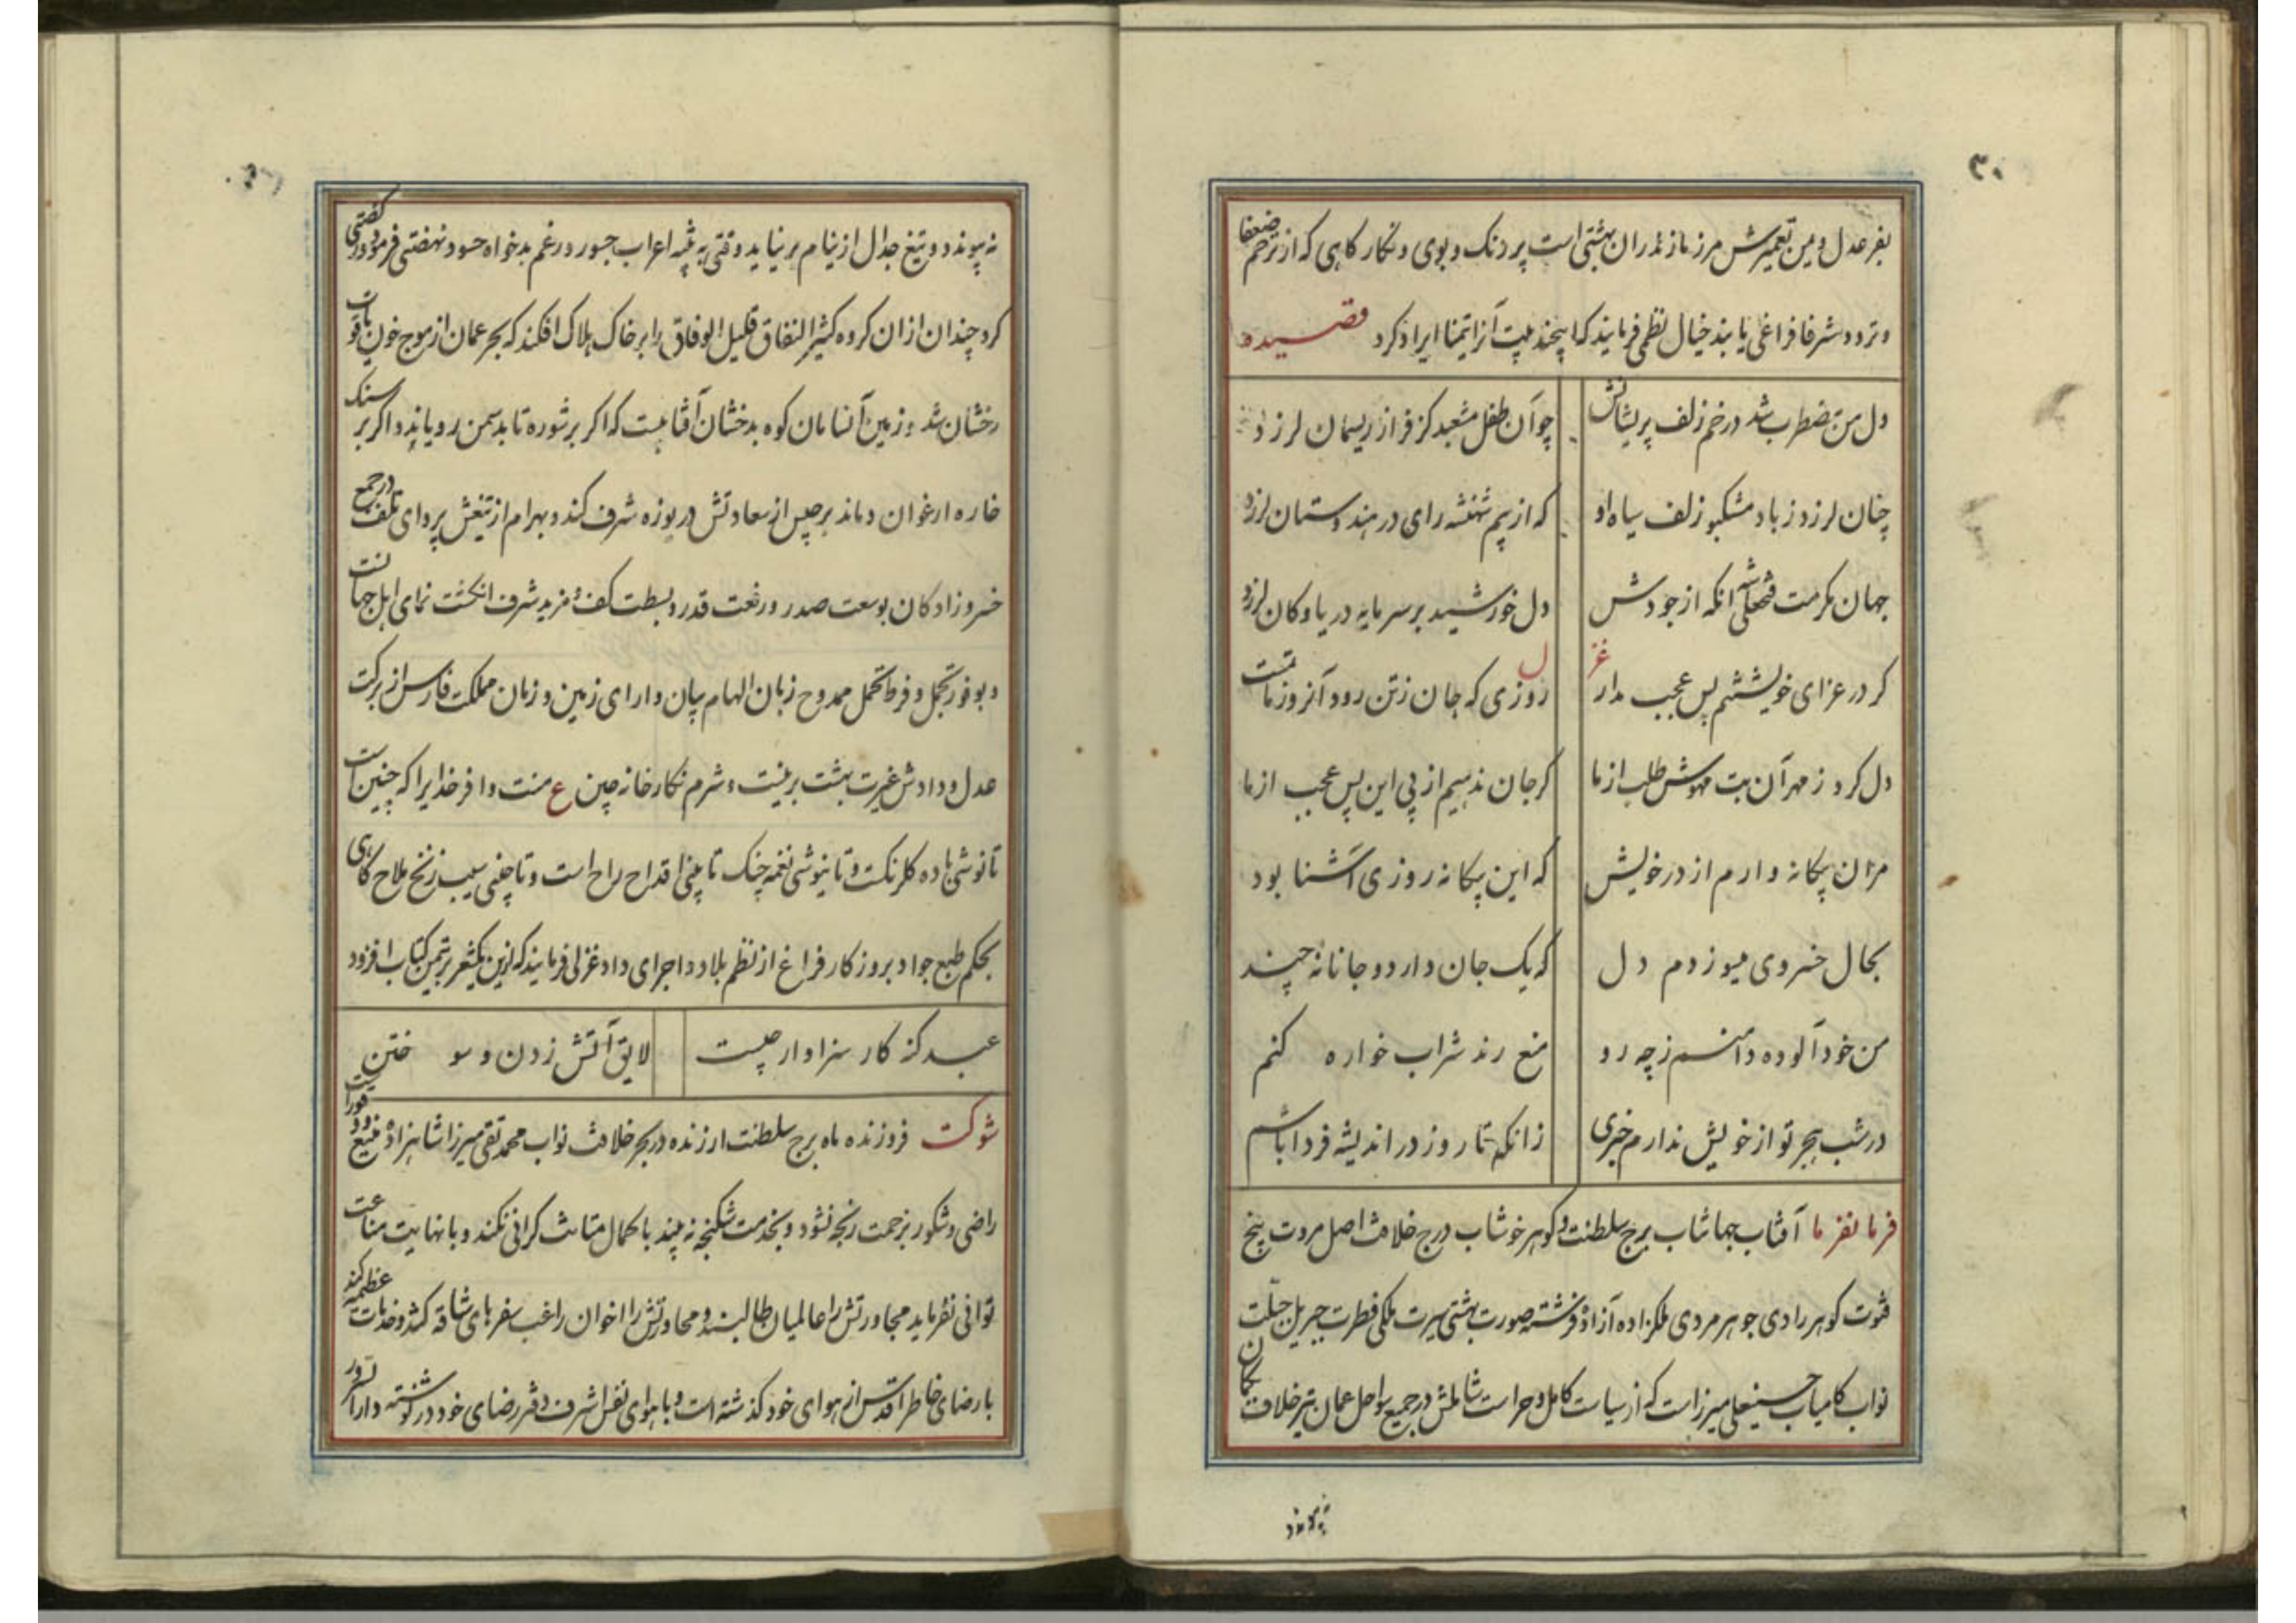 ۳۰
بفر عدل و یمن تعمیرش مرز مازندران بهشتی است پر رنک و بوی و نکار کاهی که از ترحم ضعفا
و تردد شرفا فراغی یابند خیال نظمی فرمایند که اینچند بیت آنرا تیمنا ایراد کرد قصیده
دل من مضطرب شد در خم زلف پریشانش چو آن طفل مشعبد کز فراز ریسمان لرزد
چنان لرزد ز باد مشکبو زلف سیاه او که از بیم شهنشه رای در هندوستان لرزد
جهان مکرمت فتحعلی شه آنکه از جودش دل خورشید بر سرمایه دریا و کان لرزد
غزل
کر در عزای خویشتنم پس عجب مدار روزی که جان ز تن رود آنروز ماتمست
دل کرد ز مهر آن بت مهوش طلب از ما کر جان ندهیم از پی این پس عجب از ما
مران بیکانه وارم از در خویش که این بیکانه روزی آشنا بود
بحال خسروی میسوزدم دل که یک جان دارد و جانانه چند
من خود آلوده دامنم ز چه رو منع رند شراب خواره کنم
در شب هجر تو از خویش ندارم خبری زانکه تا روز در اندیشه فردا باشم
فرمانفرما آفتاب جهانتاب برج سلطنت و کوهر خوشاب درج خلافت اصل مروت بیخ
فتوت کوهر رادی جوهر مردی ملکزاده آزاده فرشته صورت بهشتی سیرت ملکی فطرت جبریل جبلت
نواب کامیاب حسینعلی میرزاست که از سیاست کامل و حراست شاملش در جمیع سواحل عمان تیر خلاف بکمان
نه پیوندد
نه پیوندد و تیغ جدال از نیام بر نیاید وقتی به تنبیه اعراب جسور و رغم بدخواه حسود نهضتی فرمود و رکضتی
کرد چندان از ان کروه کثیر النفاق قلیل الوفاق را بر خاک هلاک افکند که بحر عمان از موج خون یاقوت
رخشان شد و زمین آنسامان کوه بدخشان آفتابیست که اکر بر شوره تابد سمن رویاند و اکر بر سنک
خاره ارغوان دماند برجیس از سعادتش دریوزه شرف کند و بهرام از تیغش پروای تلف در جمع
خسروزادکان بوسعت صدر و رفعت قدر و بسطت کف و مزید شرف انکشت نمای اهل جهانست
و بوفور تجمل و فرط تحمل ممدوح زبان الهام بیان دارای زمین و زمان مملکت فارس از برکت
عدل و دادش غیرت بهشت برینست و شرم نکارخانه چین ع منت وافر خدایرا که چنین است
تا نوشی باده کلرنکست و تا نیوشی نغمه چنک تا بینی اقداح راح است و تا چینی سیب زنخ ملاح کاهی
بحکم طبع جواد بروز کار فراغ از نظم بلاد و اجرای داد غزلی فرمایند که ازین یکشعر بر ثمین کتاب افزود
عبد کنه کار سزاوار چیست لایق آتش زدن و سوختن
شوکت فروزنده ماه برج سلطنت ارزنده در بحر خلافت نواب محمد تقی میرزا شاهزاده
راضی و شکور بزحمت رنجه نشود و بخدمت شکنجه نه بیند با کمال متانت کرانی نکند و با نهایت مناعت
توانی نفرماید مجاورتش را عالمیان طالبند و محاورتش را اخوان راغب سفرهای شاقه کند و خدمات عظیمه کند
با رضای خاطر اقدس از هوای خود کذشته است و با هوای نفس اشرف دفتر رضای خود در نوشته دارا